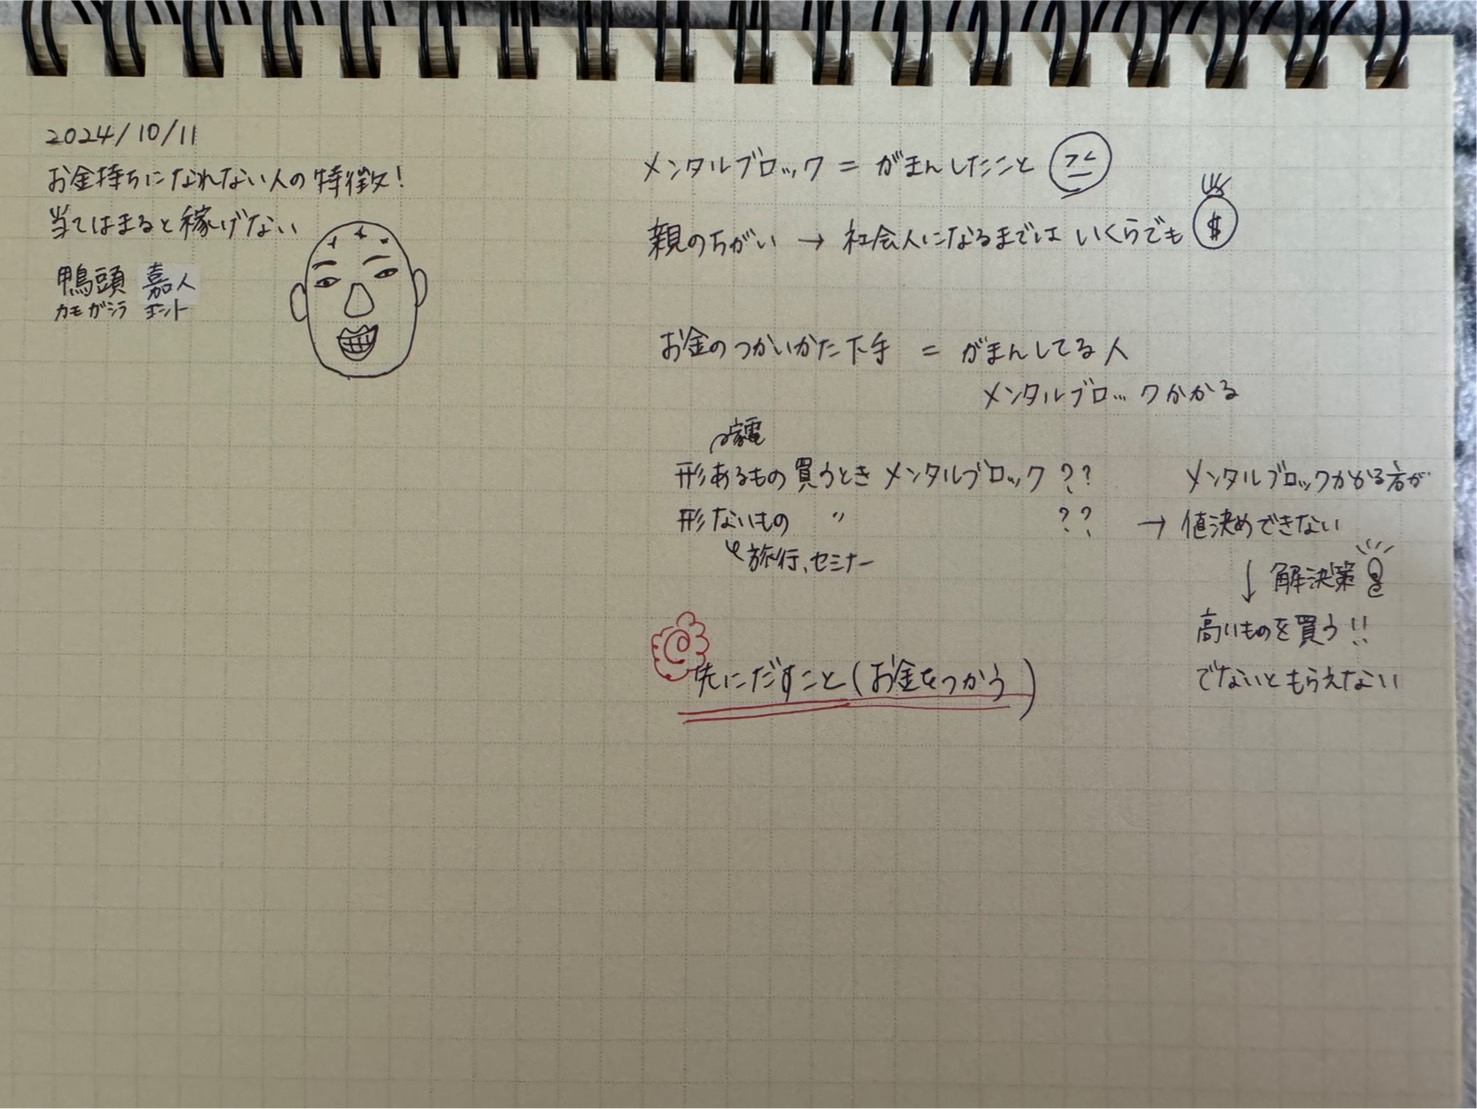 2024/10/11
お金持ちになれない人の特徴！
当てはまると稼げない
鴨頭 嘉人
カモガシラ ヨシヒト
メンタルブロック = がまんしたこと
親のちがい → 社会人になるまでは いくらでも $
お金のつかいかた下手 = がまんしてる人
メンタルブロックかかる
家電
形あるもの買うとき メンタルブロック ??
形ないもの 〃 ??
旅行、セミナー
メンタルブロックかかる方が
→ 値決めできない
↓ 解決策
高いものを買う!!
でないともらえない
先にだすこと(お金をつかう)